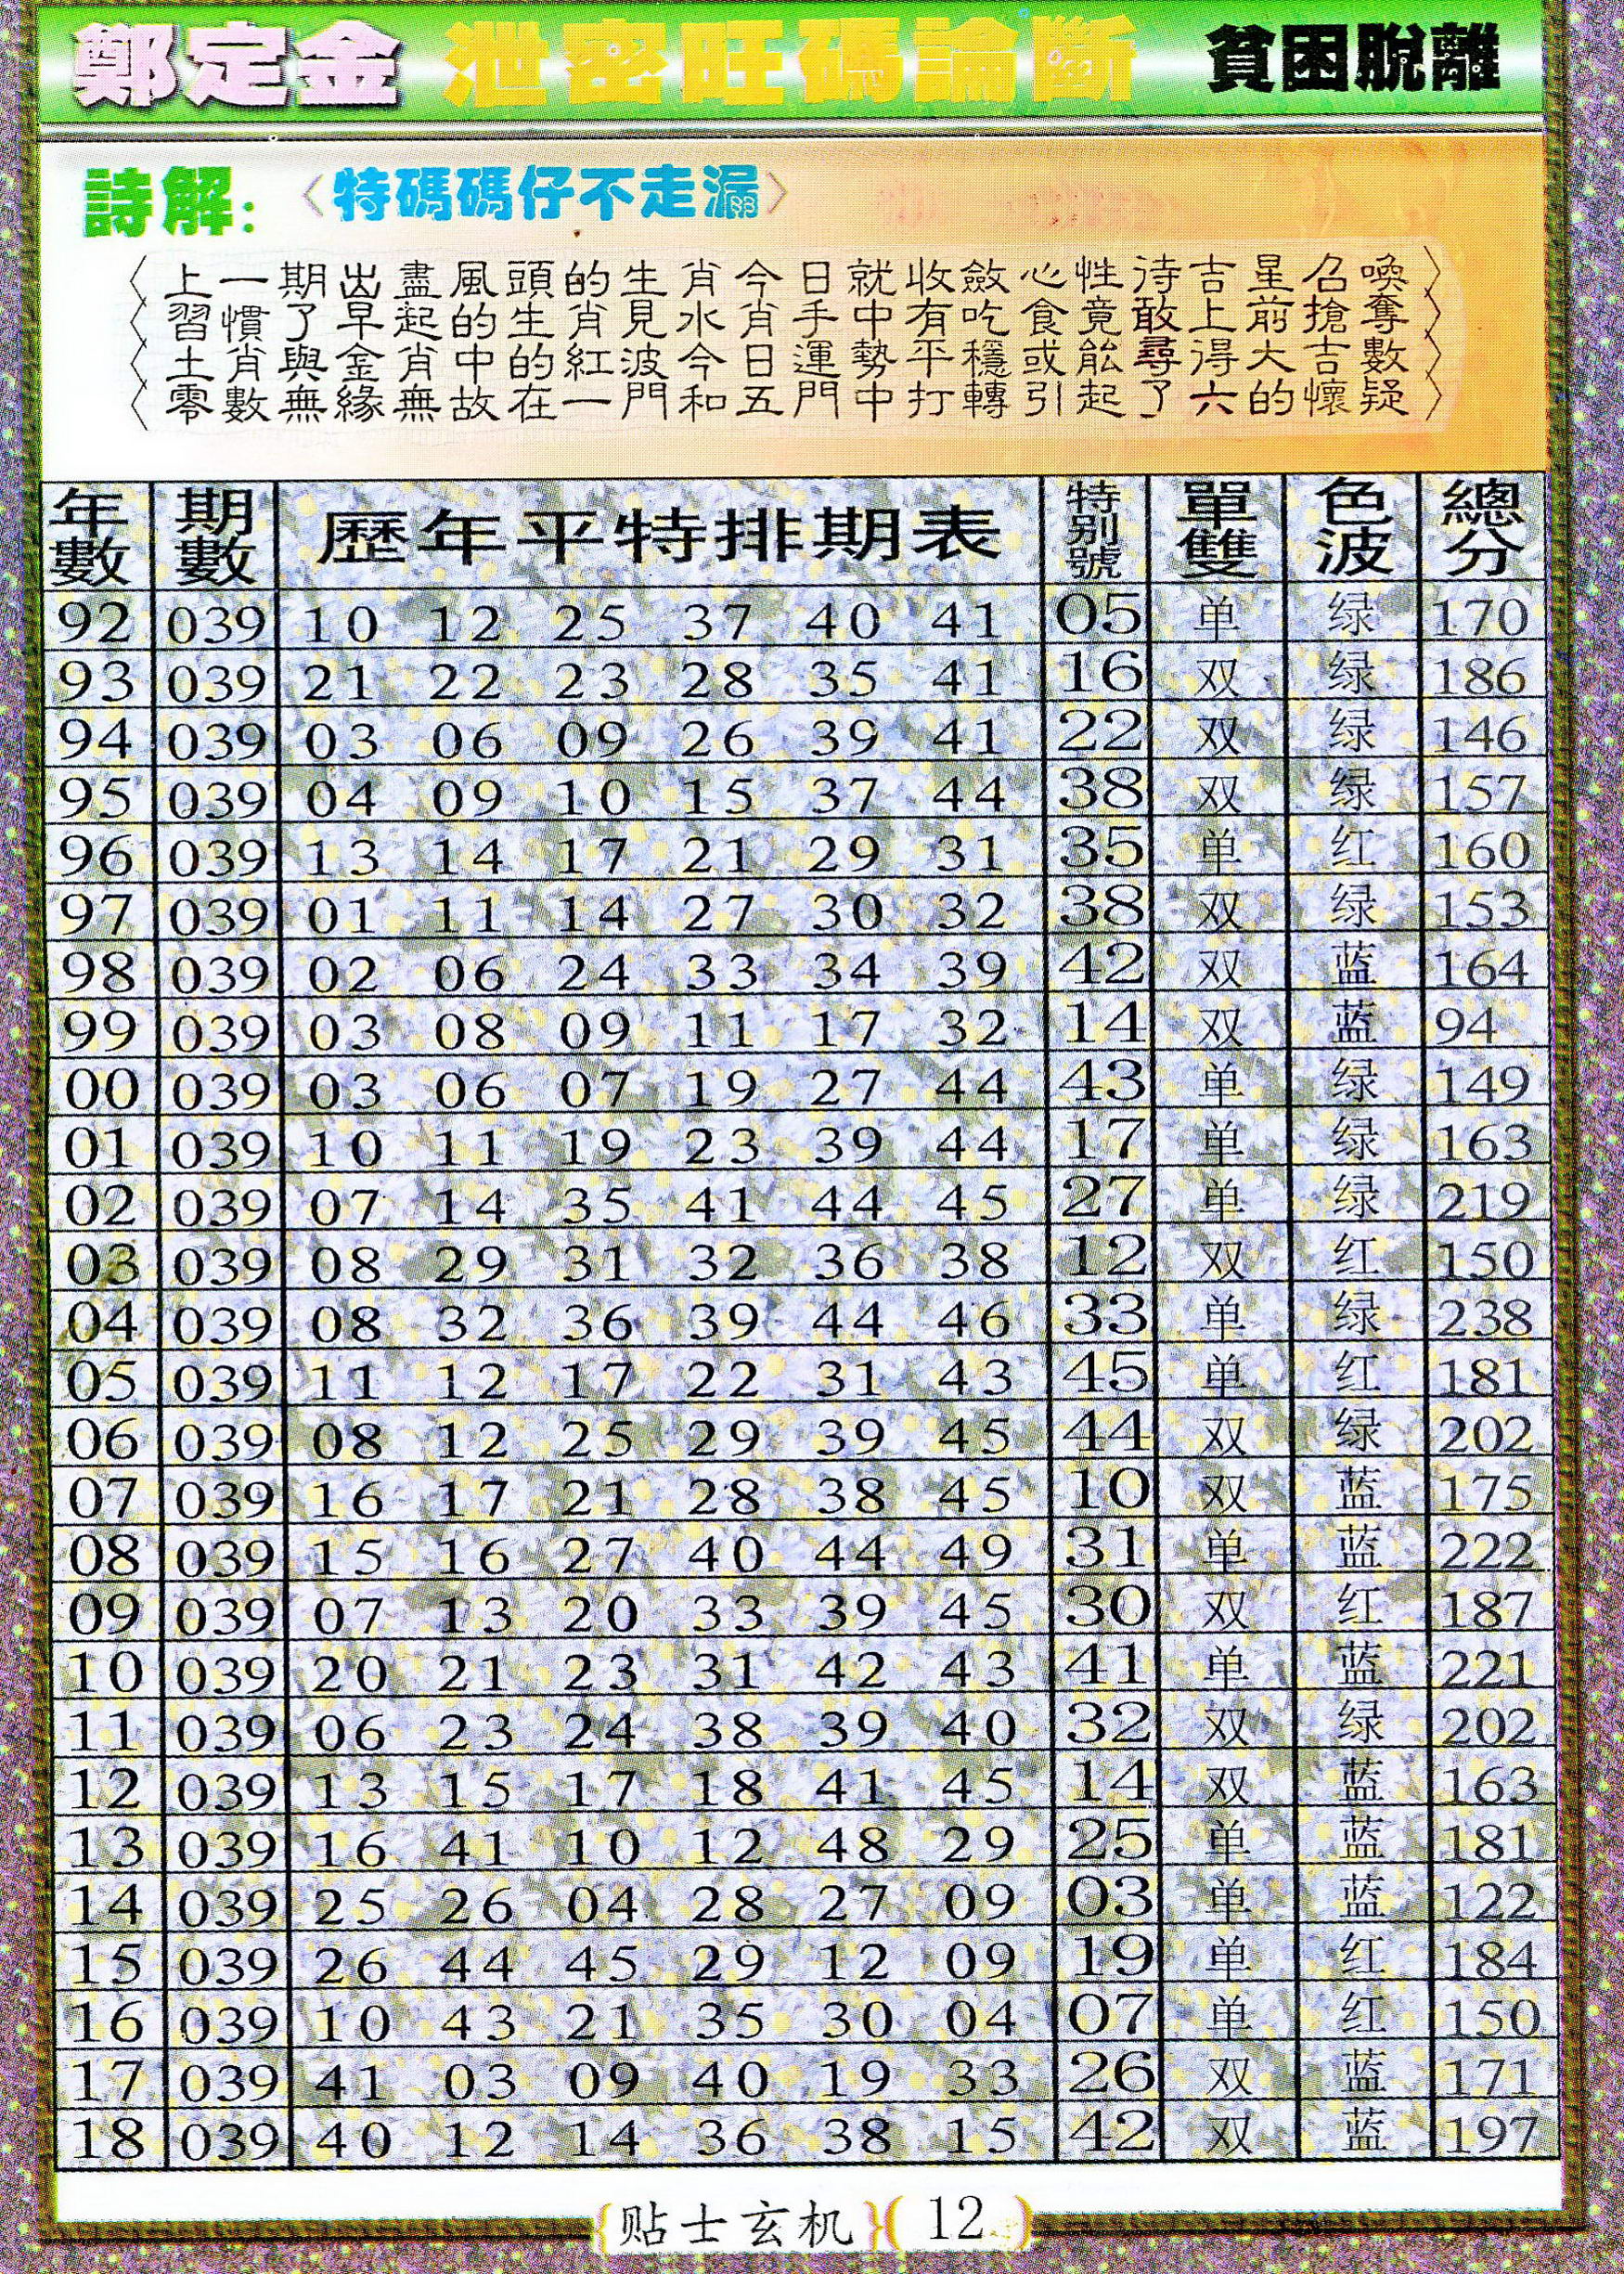 鄭定金 泄密旺碼論斷 貧困脫離
詩解：〈特碼碼仔不走漏〉
上一期出盡風頭的生肖今日就收斂心性待吉星召喚
習慣了早起的生肖見水肖手中有吃食竟敢上前搶奪
土肖與金肖中的紅波今日運勢平穩或能尋得大吉數
零數無緣無故在一門和五門中打轉引起了六的懷疑
年數 期數 歷年平特排期表 特别號 單雙 色波 總分
92 039 10 12 25 37 40 41 05 单 绿 170
93 039 21 22 23 28 35 41 16 双 绿 186
94 039 03 06 09 26 39 41 22 双 绿 146
95 039 04 09 10 15 37 44 38 双 绿 157
96 039 13 14 17 21 29 31 35 单 红 160
97 039 01 11 14 27 30 32 38 双 绿 153
98 039 02 06 24 33 34 39 42 双 蓝 164
99 039 03 08 09 11 17 32 14 双 蓝 94
00 039 03 06 07 19 27 44 43 单 绿 149
01 039 10 11 19 23 39 44 17 单 绿 163
02 039 07 14 35 41 44 45 27 单 绿 219
03 039 08 29 31 32 36 38 12 双 红 150
04 039 08 32 36 39 44 46 33 单 绿 238
05 039 11 12 17 22 31 43 45 单 红 181
06 039 08 12 25 29 39 45 44 双 绿 202
07 039 16 17 21 28 38 45 10 双 蓝 175
08 039 15 16 27 40 44 49 31 单 蓝 222
09 039 07 13 20 33 39 45 30 双 红 187
10 039 20 21 23 31 42 43 41 单 蓝 221
11 039 06 23 24 38 39 40 32 双 绿 202
12 039 13 15 17 18 41 45 14 双 蓝 163
13 039 16 41 10 12 48 29 25 单 蓝 181
14 039 25 26 04 28 27 09 03 单 蓝 122
15 039 26 44 45 29 12 09 19 单 红 184
16 039 10 43 21 35 30 04 07 单 红 150
17 039 41 03 09 40 19 33 26 双 蓝 171
18 039 40 12 14 36 38 15 42 双 蓝 197
{贴士玄机}(12)